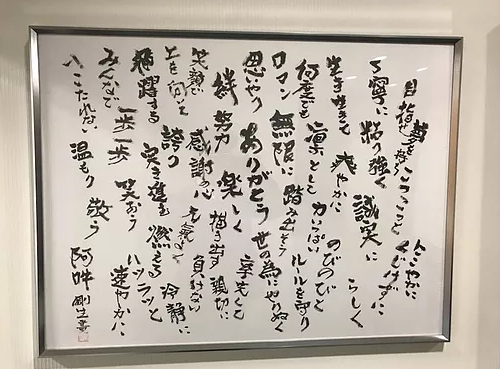 目指せ 夢を形に こつこつと くじけずに にこやかに
丁寧に 粘り強く 誠実に らしく
生き生きと 爽やかに のびのびと
何度でも 凛として 力いっぱい ルールを守り
ロマン 無限に 踏み出そう 世の為に やりぬく
思いやり ありがとう
絆 努力 楽しく 描き出す 親切に
笑顔で 感謝の心 元気よく 負けない
上を向いて 誇り 燃える 冷静に
飛躍する 突き進む ハツラツと
みんなで 一歩一歩 笑おう 速やかに
へこたれない 温もり 敬う 阿吽 剛生書